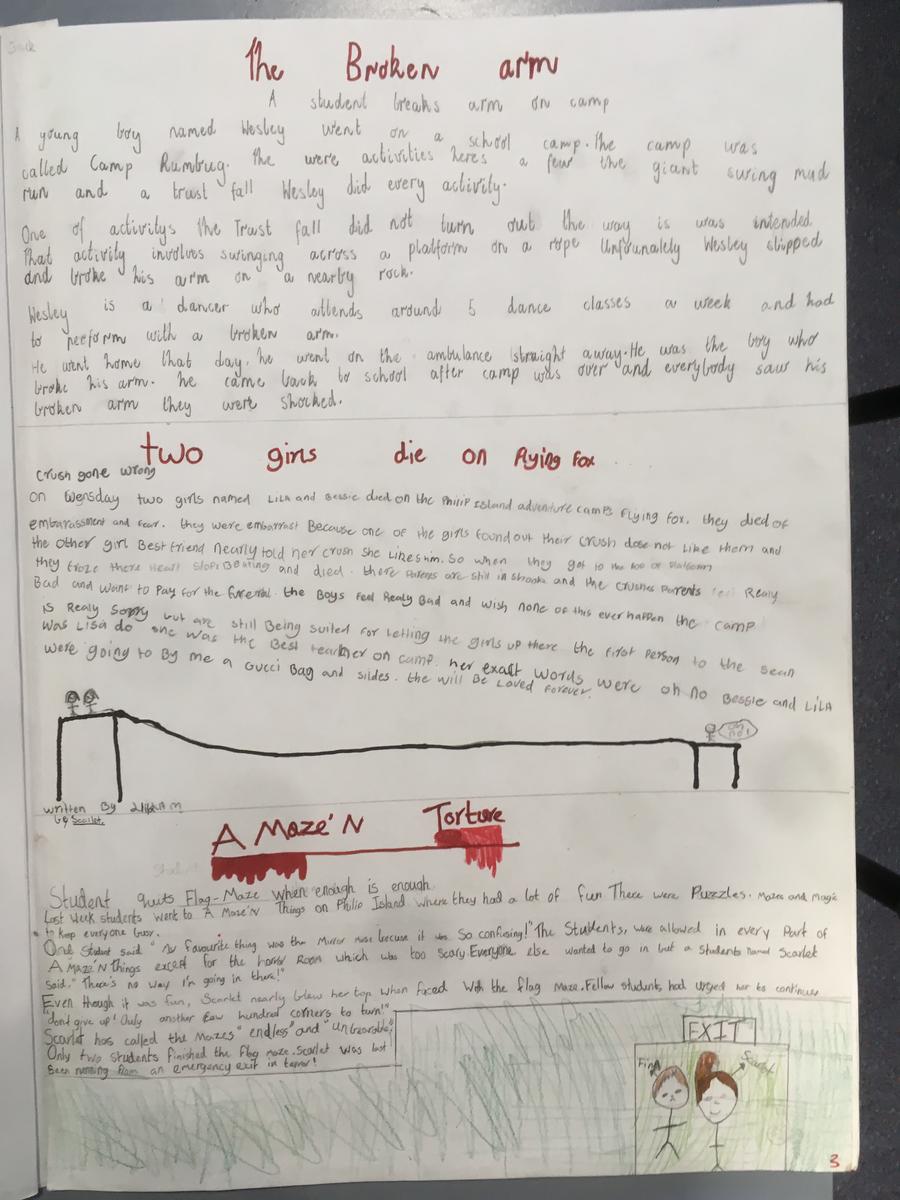 The Broken arm
A student breaks arm on camp
A young boy named Wesley went on a school camp. the camp was
called Camp Rumbug. the were activities heres a few the giant swing mud
run and a trust fall Wesley did every activity.
One of activitys the Trust fall did not turn out the way is was intended
That activity involves swinging across a platform on a rope Unfounalely Wesley slipped
and broke his arm on a nearby rock.
Wesley is a dancer who attends around 5 dance classes a week and had
to preform with a broken arm.
He went home that day. he went on the ambulance straight away. He was the boy who
broke his arm. he came back to school after camp was over and everybody saw his
broken arm they were shocked.
two girls die on Flying Fox
Crush gone wrong
on Wensday two girls named LiLa and Bessie died on the Philip Island adventure camps Flying Fox. they died of
embarassment and fear. they were embarrast Because one of the girls found out their crush dose not Like them and
the other girl Best friend nearly told her crush She Likes him. So when they got to the top of Platform
they froze there Heart Stops Beating and died. there Parents are still in and the crushes Parents feel Realy
Bad and want to Pay for the funeral. the Boys feel Realy Bad and wish none of this ever happen the camp
is Realy Sorry but are still Being suited for letting the girls up there the first Person to the sean
was Lisa do she was the Best teacher on camp. her exact words were oh no Bessie and LiLa
were going to By me a Gucci Bag and slides. the will Be Loved Forever.
oh no!
written By
Scarlet
A Maze'N Torture
Student quits Flag-Maze When enough is enough
Last week students went to A Maze'N Things on Philip Island where they had a lot of fun There were Puzzles, Maze and magic
to keep everyone busy.
One Student said "My favourite thing was the Mirror maze becuse it was So confusing!" The Students, were allowed in every part of
A Maze'N Things except for the horror Room which was too scary. Everyone else wanted to go in but a Students Named Scarlet
Said. "There's no way I'm going in there!"
Even though it was fun, Scarlet nearly blew her top when faced With the flag Maze. Fellow students, had urged her to continue
"dont give up! Only another Few hundred corners to turn!"
Scarlet has called the Mazes "endless" and "Unbearable"
Only two students finished the flag maze. Scarlet was last
Seen running from an emergency exit in terror!
EXIT
Finn
Scarlet
3